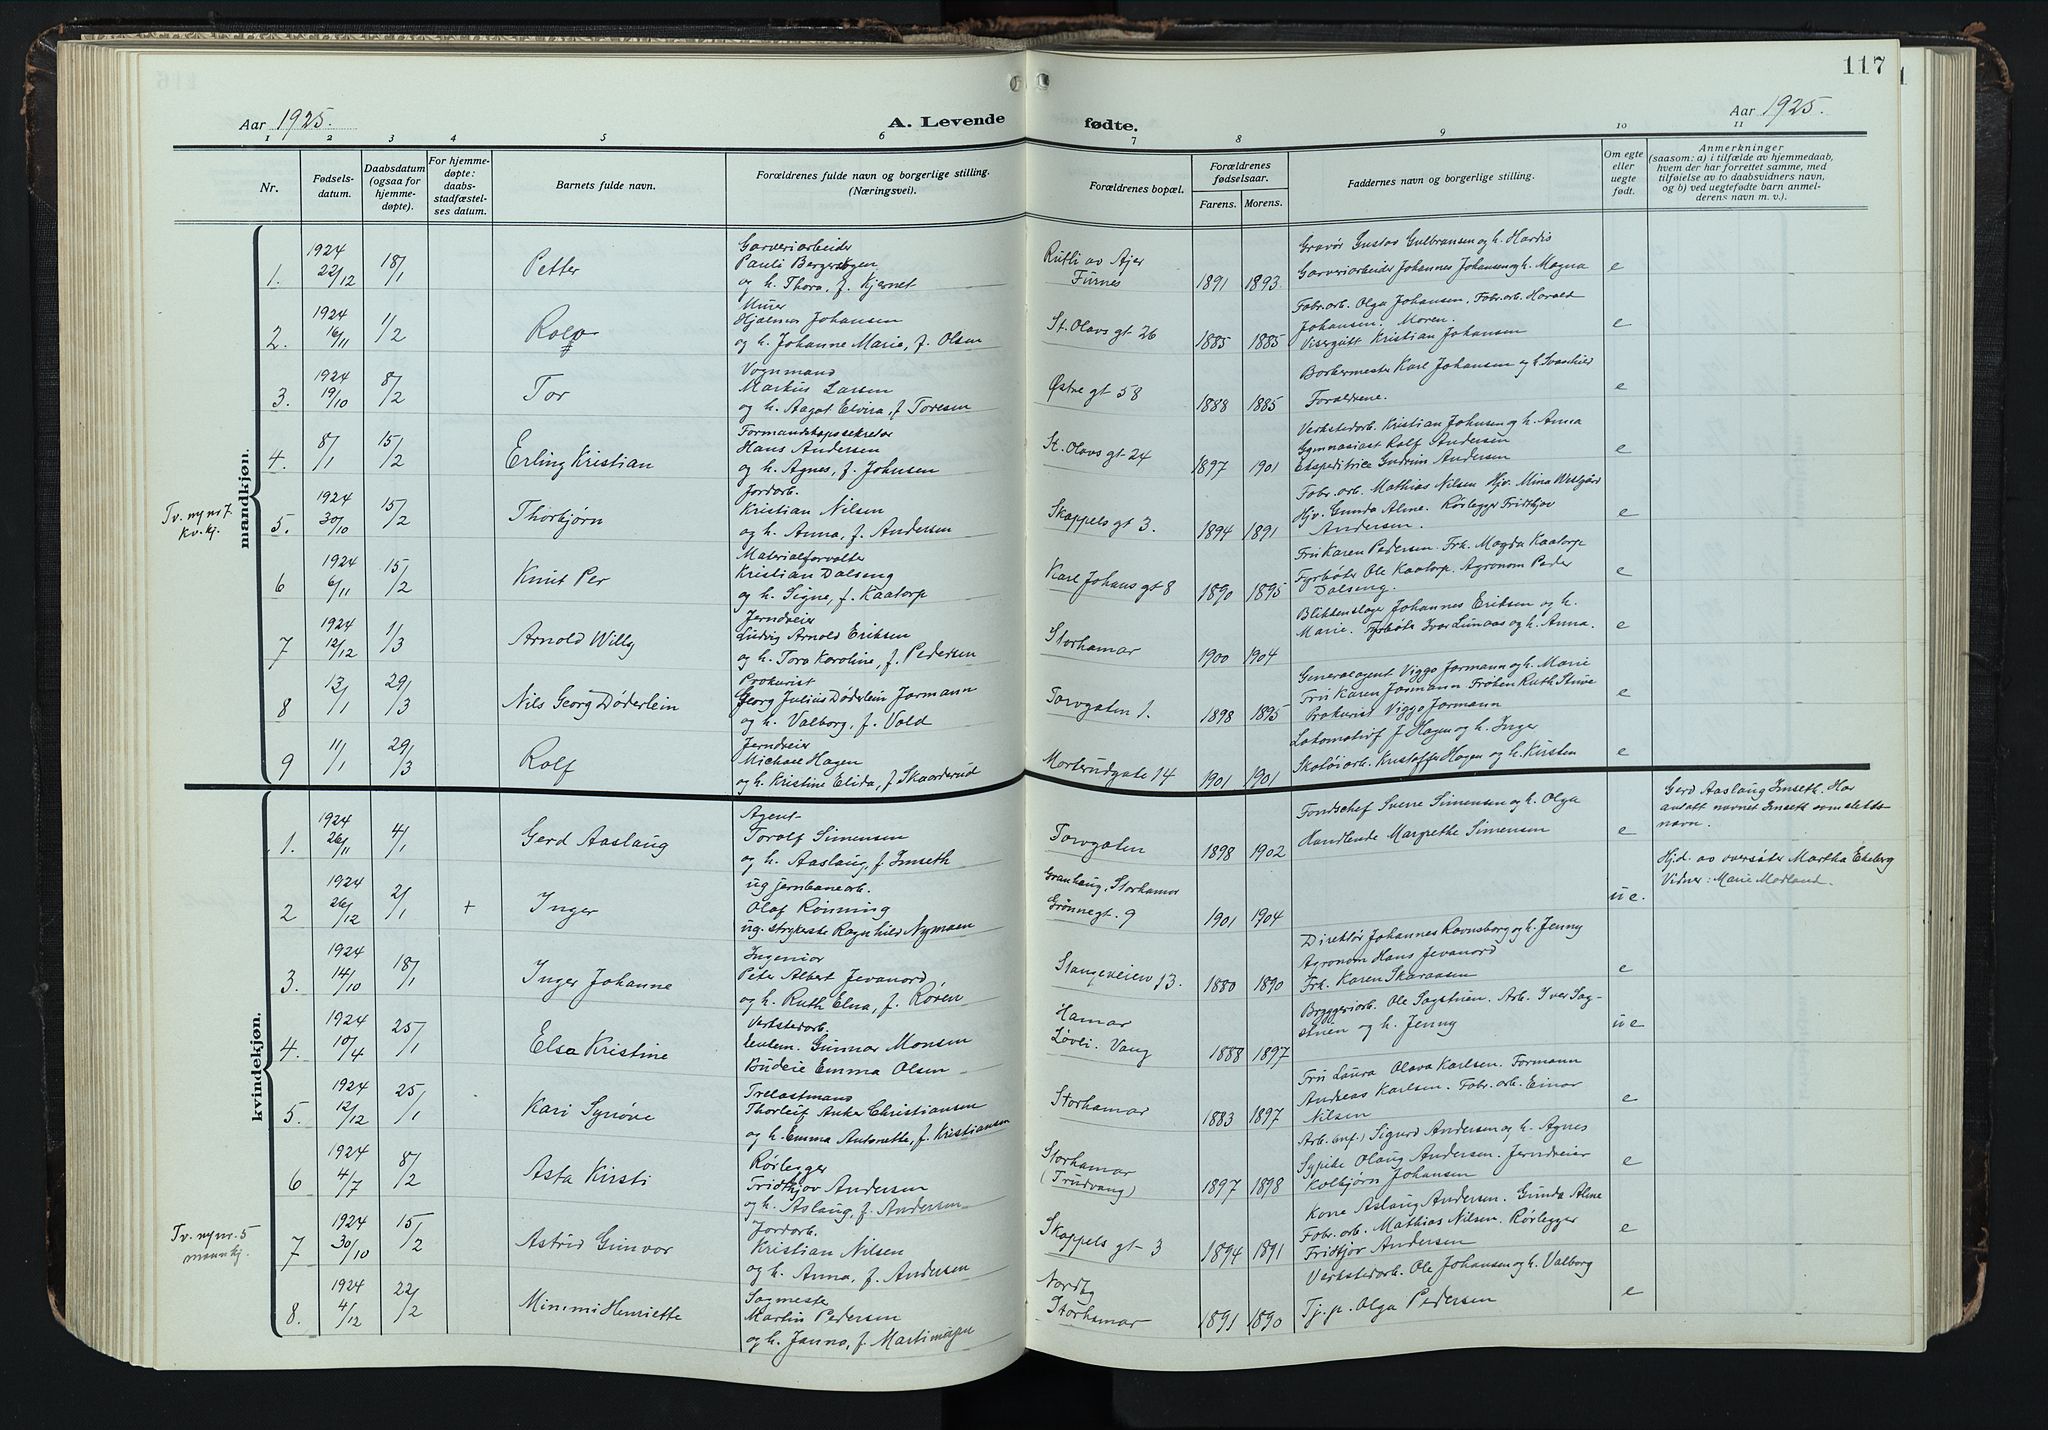 117
Aar 1925.
A. Levende fødte.
Aar 1925.
1 2 3 4 5 6 7 8 9 10 11
Nr.
Fødsels-
datum.
Daabsdatum
(ogsaa for
hjemme-
døpte).
For hjemme-
døpte:
daabs-
stadfæstel-
ses datum.
Barnets fulde navn.
Forældrenes fulde navn og borgerlige stilling.
(Næringsvei).
Forældrenes bopæl.
Forældrenes
fødselsaar.
Farens. Morens.
Faddernes navn og borgerlige stilling.
Om egte
eller
uegte
født.
Anmerkninger
(saasom: a) i tilfælde av hjemmedaab,
hvem der har forrettet samme, med
tilføielse av to daabsvidners navn,
og b) ved uegtefødte barn anmel-
derens navn m. v.).
mandkjøn.
1. 1924 22/12 18/1 Petter
Garveriarbeider
Pauli Bergerengen
og h. Thora, f. Kjernet
Rutli av Ajer
Furnes
1891 1893
Gravør Gustav Gulbransen og h. Hardis
Garveriarbeider Johannes Johansen og h. Magna
e
2. 1924 16/11 1/2 Rolv
Murer
Hjalmar Johansen
og h. Johanne Marie, f. Olsen
St. Olavs gt 26
1885 1885
Fabr.arb. Olga Johansen, Fabr.arb. Harald
Johansen. Moren.
Visergutt Kristian Johansen
e
3. 1924 19/10 8/2 Tor
Vognmand
Markus Larsen
og h. Aagot Elvira, f. Toresen
Østre gt 58
1888 1885
Barbermester Karl Johansen og h Svanhild
Foreldrene.
e
4. 8/1 15/2 Erling Kristian
Formandskapssekretær
Hans Andersen
og h. Agnes, f. Johnsen
St. Olavs gt 24
1897 1901
Verkstedarb. Kristian Johnsen og h. Anna
Gymnasiast Rolf Andersen
Ekspeditrice Gudrun Andersen
e
Tv. m nr 7.
kv. kj.
5. 1924 30/10 15/2 Thorbjørn
Jordarb.
Kristian Nilsen
og h. Anna, f. Andersen
Skappels gt 3.
1894 1891
Fabr. arb. Mathias Nilsen Hjv. Mina Westgård
Hjv. Gunda Alme. Rørlegger Fridtjov
Andersen.
e
6 1924 6/11 15/2 Knut Per
Materialforvalter
Kristian Dalseng
og h. Signe, f. Kaatorp
Karl Johans gt 8
1890 1895
Fru Karen Pedersen. Frk. Magda Kaatorp
Fyrbøter Ole Kaatorp. Agronom Peder
Dalseng.
e
7 1924 12/12 1/3 Arnold Willy
Jerndreier
Ludvig Arnold Eriksen
og h. Tora Karoline, f. Pedersen
Storhamar
1900 1904
Blikkenslager Johannes Eriksen og h.
Marie. Fyrbøter Ivar Lunaas og h. Anna.
e
8 13/1 29/3 Nils Georg Døderlein
Prokurist
Georg Julius Døderlein Jormann
og h. Valborg, f. Vold
Torvgaten 1.
1898 1895
Generalagent Viggo Jormann og h. Marie
Fru Karen Jormann Frøken Ruth Stuve
Prokurist Viggo Jormann
e
9 11/1 29/3 Rolf
Jerndreier
Michael Hagen
og h. Kristine Elida, f. Skaarderud
Morterudgate 14
1901 1901
Lokomotivf J Hagen og h. Inger
Skotøiarb. Kristoffer Hagen og h. Kirsten
e
kvindekjøn.
1. 1924 26/11 4/1 Gerd Aaslaug
Agent
Toralf Simensen
og h. Aaslaug, f. Imseth
Torvgaten
1898 1902
Fondschef Sverre Simensen og h. Olga
Handlende Margrethe Simensen
e
Gerd Aaslaug Imseth. Har
antatt navnet Imseth som slekts-
navn.
2 1924 26/12 2/1 + Inger
ug jernbanearb.
Olaf Rønning
ug. strykeske Ragnhild Nymoen
Granhaug, Storhamar
Grønnegt. 9
1901 1904
ue.
Hjd. av oversøster Martha Ekeberg
Vidner: Marie Morland.
3. 1924 14/10 18/1 Inger Johanne
Ingeniør
Peter Albert Jevanord,
og h. Ruth Elna, f. Røren
Stangeveien 13.
1880 1890
Direktør Johannes Ravnsborg og h. Jenny
Agronom Hans Jevanord
Frk. Karen Skaraasen
e
4. 1924 10/4 25/1 Elsa Kristine
Verkstedarb.
Gunnar Monsen
Budeie Emma Olsen
Hamar
Løvli. Vang
1888 1897
Bryggeriarb. Ole Sagstuen. Arb. Iver Sag-
stuen og h. Jenny
ue
5. 1924 12/12 25/1 Kari Synøve
Trelastmand
Thorleif Anker Christiansen
og h. Emma Antonette, f. Kristiansen
Storhamar
1883 1897
Fru Laura Olava Karlsen. Formann
Andreas Karlsen. Fabr. arb. Einar
Nilsen
e
6 1924 4/7 8/2 Asta Kirsti
Rørlegger
Fridtjov Andersen
og h. Aslaug, f. Andersen
Storhamar
(Trudvang)
1897 1898
Arb. Sigurd Andersen og h. Agnes
Sypike Olaug Andersen. Jerndreier
Kolbjørn Johansen
e
Tv. m nr. 5
mannkj.
7 1924 30/10 15/2 Astrid Gunvor
Jordarb.
Kristian Nilsen
og h. Anna, f. Andersen
Skappels gt 3
1894 1891
Kone Aslaug Andersen. Gunda Alme
Fabr. arb. Mathias Nilsen. Rørlegger
Fridtjov Andersen
e
8. 1924 4/12 22/2 Mimmi Henriette
Sagmester
Martin Pedersen
og h. Janna, f. Martinsen
Nordby
Storhamar
1891 1890
Verkstedarb. Ole Johansen og h. Valborg
Tj. p. Olga Pedersen
e